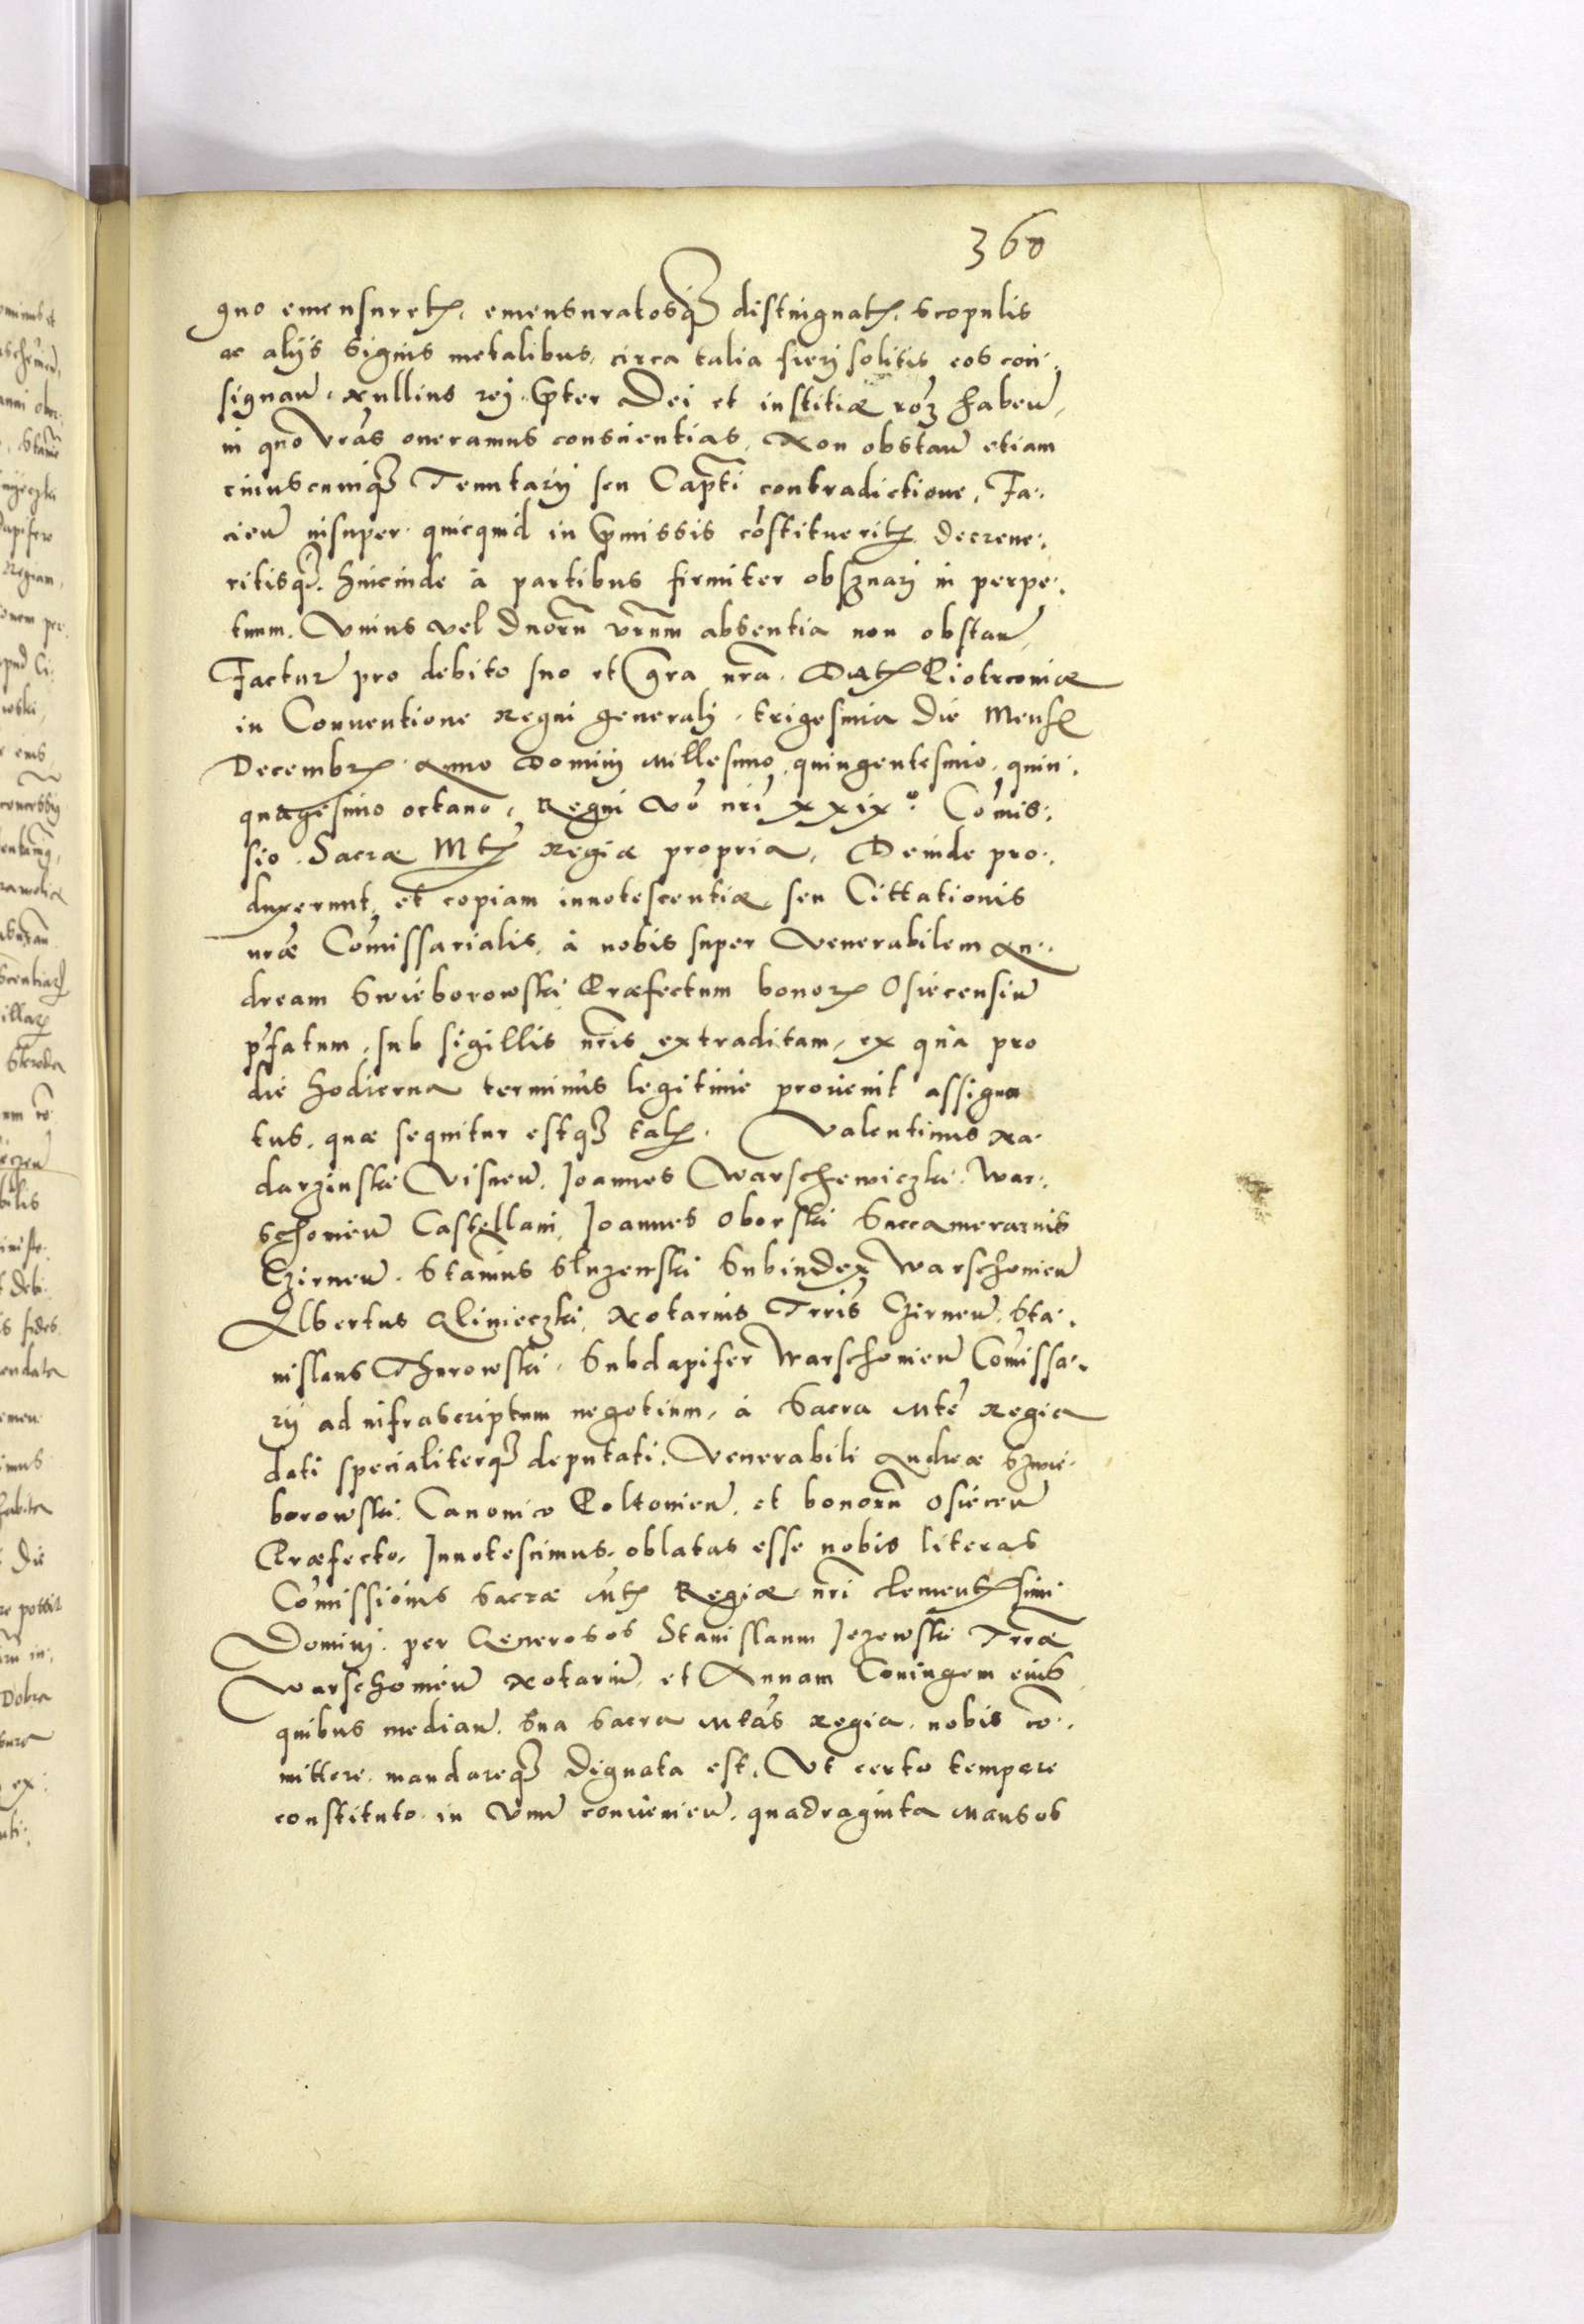 360
quo emensuretꝭ, emensuratosqꝫ distinguatꝭ, scopulis
ac alÿs signis metalibus, circa talia fierj solitis eos con:
signaň, Nullius rej pter Dei et iustitiæ roꝫ habeň,
in quo vrãs oneramus conscientias, Non obstaň etiam
cuiuscunqꝫ Tenutarÿ seu Capti contradictione, Fa:
cieň insuper quicquid in pmissis cõstitueritꝭ decreue:
ritisqꝫ hincinde à partibus firmiter obsꝛuarj in perpe:
tuum. Vnius vel duorũ vrũm absentia non obstaň
Facturĩ pro debito suo et gra nra. Datꝭ Piotrcoviæ
in Conuentione Regni generalj, trigesima die Mensꝭ
Decembrꝭ Anno Dominj Millesimo, quingentesimo, quin:
quagesimo octauo, Regni vo nri xxix°. Comis:
sio Sacræ Mtꝭ Regiæ propria, Deinde pro:
duxerunt, et copiam innotescentiæ seu Cittationis
nræ Comissarialis, à nobis super Venerabilem An:
dream Swieborowski Præfectum bonorꝭ Osiecensiũ
pfatum, sub sigillis nris extraditam, ex qua pro
die hodierna terminus legitime prouenit assigna
tus, quæ sequitur estqꝫ talꝭ. Valentinus Na:
darzinski Visneň, Joannes Warschewiczki War:
schouieň Castellani, Joannes Oborski Succamerarius
Czirneň, Stanius Sluzewski Subiudex Warschouieň
Albertus Glinieczki, Notarius Trris Czirneň, Sta:
nislaus Thurowski, Subdapifer Warschouieň Comissa:
rÿ ad infrascriptum negotium, à Sacra Mte Regia
dati specialiterqꝫ deputati, Venerabili Andreæ Szwie:
borowski Canonico Poltouieň, et bonorũ Osieceň
Præfecto, Innotescimus, oblatas esse nobis literas
Comissionis Sacræ Mtꝭ Regiæ nri clementꝭsimi
Dominj per Generosos Stanislaum Jezewski Trræ
Warschouieň Notariũ, et Annam Coniugem eius
quibus mediaň, Sua Sacra Mtas Regia nobis co:
mittere mandareqꝫ dignata est, Vt certo tempore
constituto in vnũ conuenieň, quadraginta Mansos